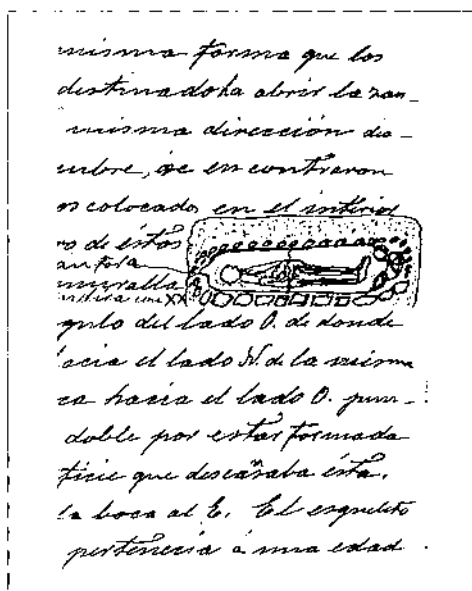 misma forma que los
destinados a abrir la zan-
misma dirección dia-
cubre, se encontraron
colocados en el interior
ro de éstos
ánfora
muralla
XX
gulo del lado O. de donde
acia el lado N. de la misma
ca hacia el lado O. jun-
doble por estar formada
ficie que descansaba ésta.
la boca al E. El esqueleto
pertenecia á una edad